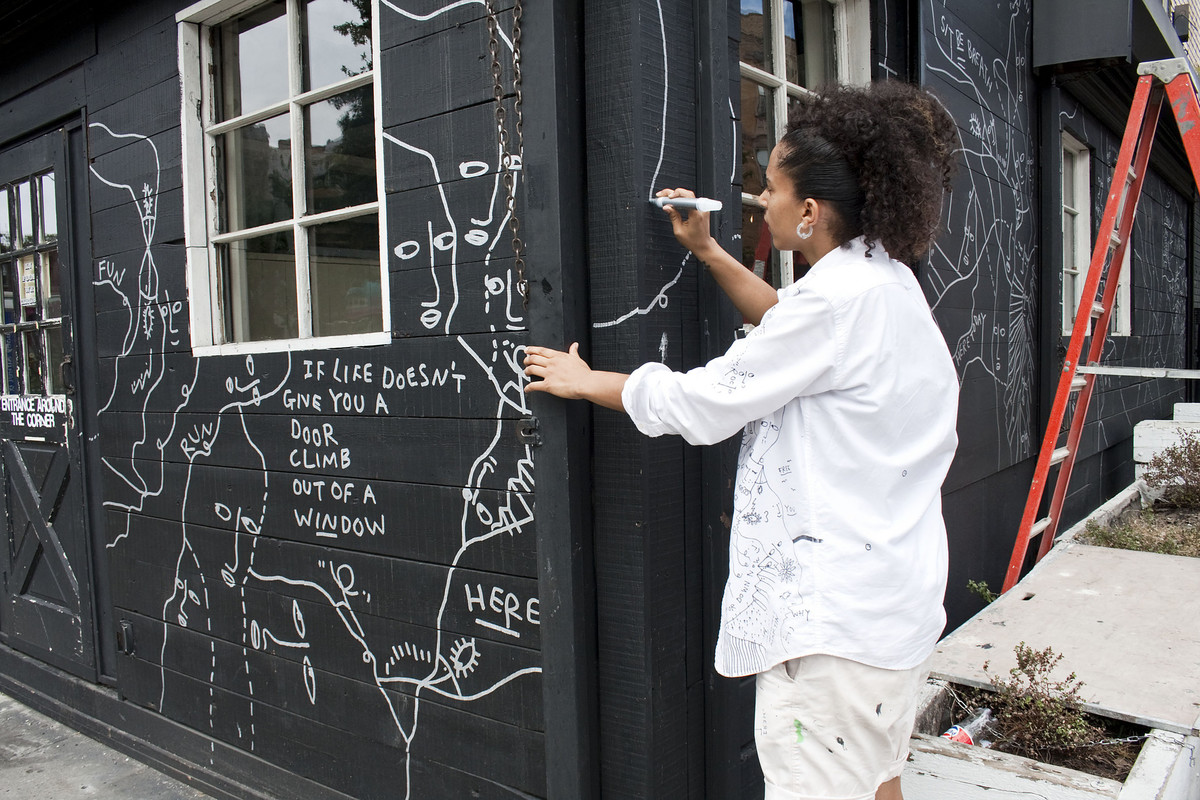 FUN
IF LIFE DOESN'T
GIVE YOU A
DOOR
CLIMB
OUT OF A
WINDOW
RUN
HERE
ENTRANCE AROUND
THE CORNER